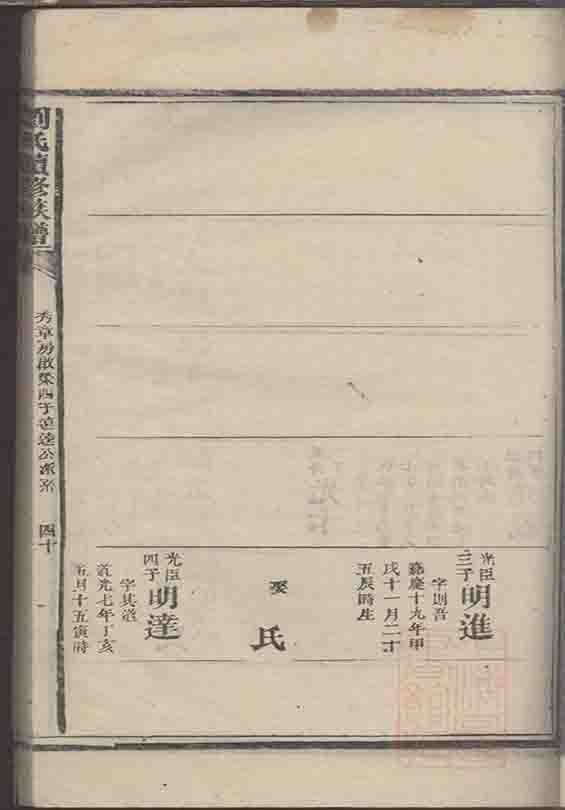 光臣三子 明進
字則吾
嘉慶十九年甲
戌十一月二十
五辰時生
娶 氏
光臣四子 明達
字其道
道光七年丁亥
五月十五寅時
劉氏續修族譜
秀章房啟榮四子達公派系
四十